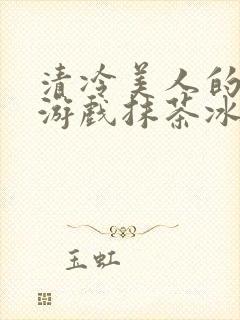 清冷美人的
游戏抹茶冰
玉虹